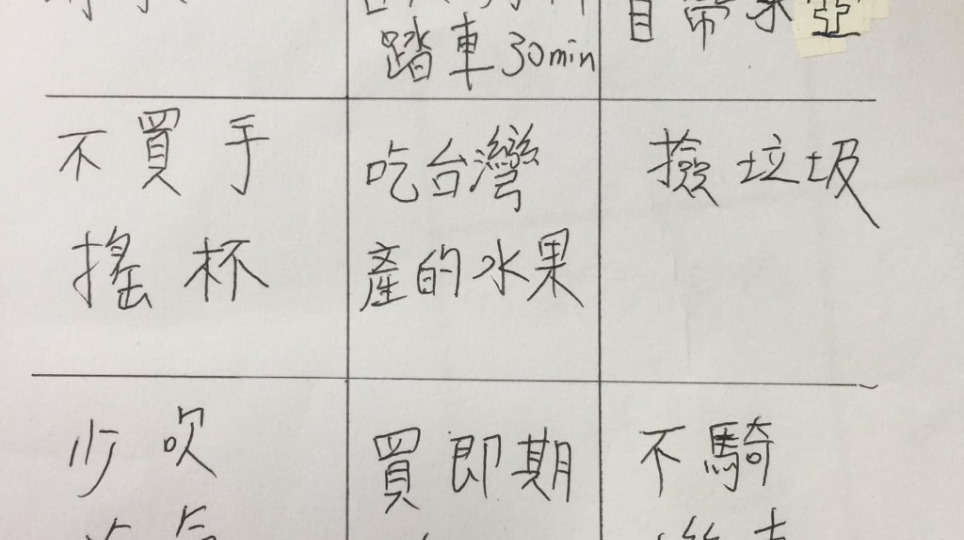 踏車30min
自帶水壺
不買手
搖杯
吃台灣
產的水果
撿垃圾
少吹
買即期
不騎